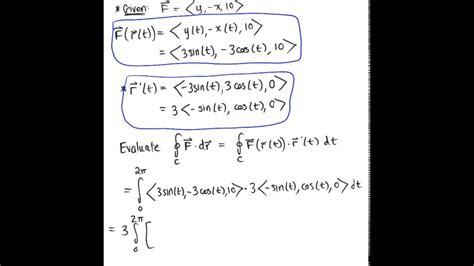 * Given: F⃗ = <y, -x, 10>
F⃗(r⃗(t)) = <y(t), -x(t), 10>
= <3sin(t), -3cos(t), 10>
* r⃗'(t) = <-3sin(t), 3cos(t), 0>
= 3<-sin(t), cos(t), 0>
Evaluate ∮_C F⃗·dr⃗ = ∮_C F⃗(r⃗(t))·r⃗'(t) dt
= ∫_0^2π <3sin(t), -3cos(t), 10>·3<-sin(t), cos(t), 0> dt
= 3∫_0^2π [